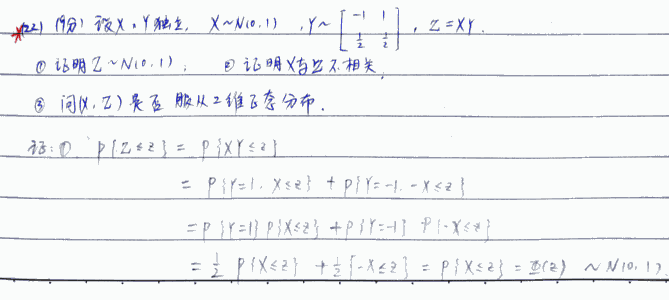 *(22) (9分) 设X、Y独立, X~N(0,1), Y~[-1 1; 1/2 1/2], Z=XY.
① 证明Z~N(0,1); ② 证明X与Z不相关;
③ 问(X,Z)是否服从2维正态分布.
证:① P{Z≤z} = P{XY≤z}
= P{Y=1, X≤z} + P{Y=-1, -X≤z}
= P{Y=1}P{X≤z} + P{Y=-1} P{-X≤z}
= 1/2 P{X≤z} + 1/2{-X≤z} = P{X≤z} = Φ(z) ~N(0,1).